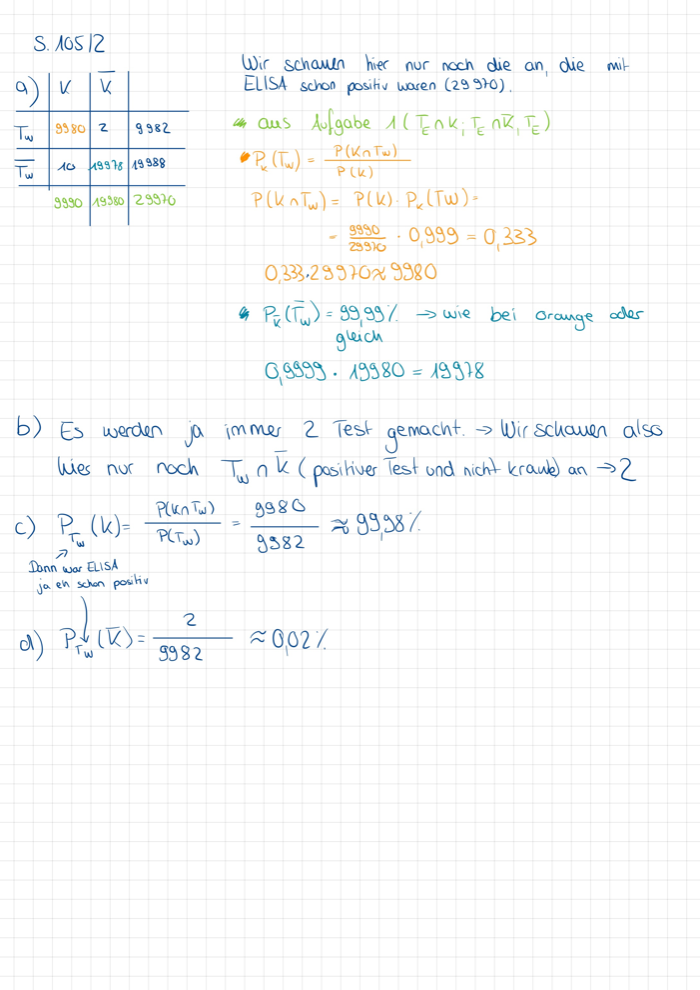 S. 105/2
a) K K̅
T_w 9980 2 9982
T̅_w 10 19978 19988
9990 19980 29970
Wir schauen hier nur noch die an, die mit
ELISA schon positiv waren (29970).
aus Aufgabe 1 (T_E∩K; T_E∩K̅, T_E)
P_K(T_w) = P(K∩T_w) / P(K)
P(K∩T_w) = P(K) · P_K(TW) =
= 9990/29970 · 0,999 = 0,333
0,333·29970≈9980
P_K̅(T̅_w) = 99,99% → wie bei orange oder
gleich
0,9999 · 19980 = 19978
b) Es werden ja immer 2 Test gemacht. → Wir schauen also
hies nur noch T_w ∩ K̅ (positiver Test und nicht krank) an → 2
c) P_T_w(K) = P(K∩T_w) / P(T_w) = 9980 / 9982 ≈ 99,98%
Dann war ELISA
ja eh schon positiv
d) P_T_w(K̅) = 2 / 9982 ≈ 0,02%